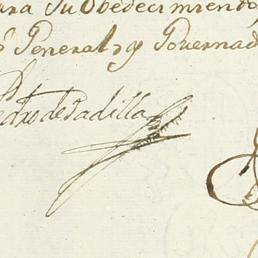 ara Su Obedecimiento,
General, y Governad
Pedro de Padilla